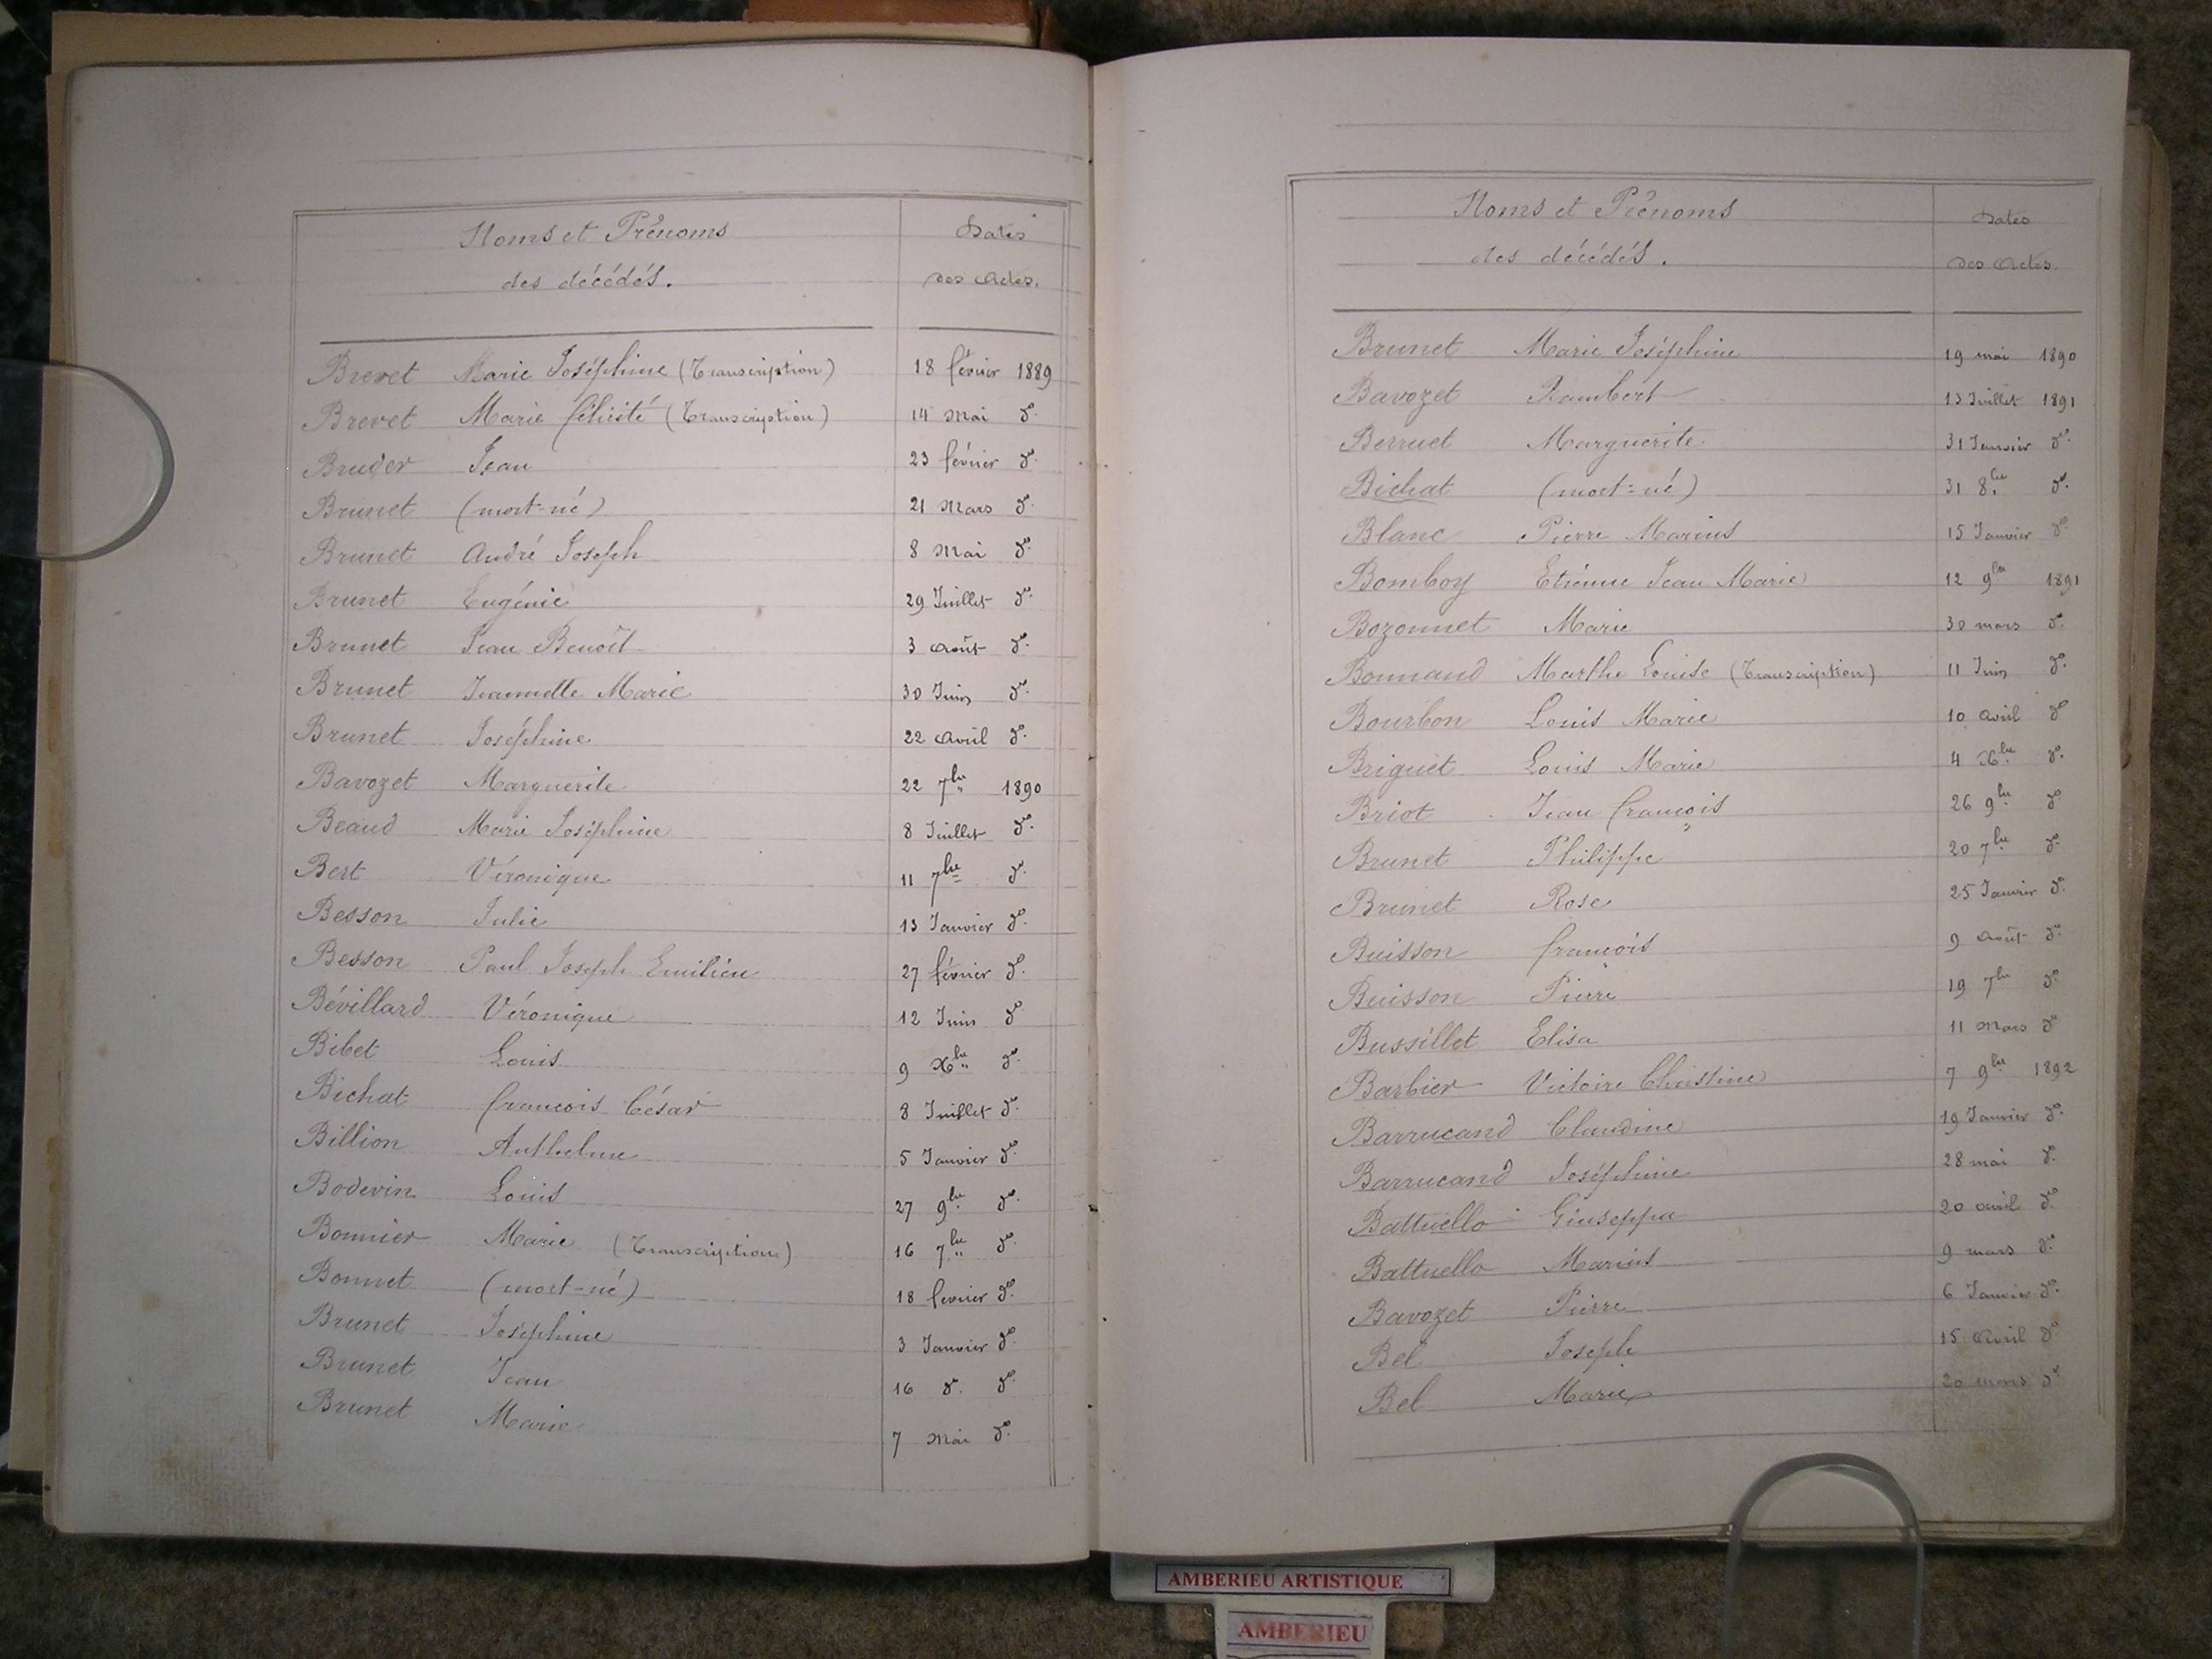 Noms et Prénoms
des décédés.
Dates
des Actes.
Brevet Marie Joséphine (Transcription) 18 février 1889
Brevet Marie félicité (Transcription) 14 Mai do.
Bruder Jean 23 février do.
Brunet (mort-né) 21 Mars do.
Brunet André Joseph 8 Mai do.
Brunet Eugénie 29 Juillet do.
Brunet Jean Benoît 3 Août do.
Brunet Jeannette Marie 30 Juin do.
Brunet Joséphine 22 Avril do.
Bavozet Marguerite 22 7bre 1890
Beaud Marie Joséphine 8 Juillet do.
Bert Véronique 11 7bre do.
Besson Julie 13 Janvier do.
Besson Paul Joseph Emilien 27 février do.
Bévillard Véronique 12 Juin do
Bibet Louis 9 Xbre do.
Bichat francois César 8 Juillet do.
Billion Anthelme 5 Janvier do.
Bodevin Louis 27 9bre do.
Bonnier Marie (Transcription) 16 7bre do.
Bonnet (mort-né) 18 fevrier do.
Brunet Joséphine 3 Janvier do.
Brunet Jean 16 do. do.
Brunet Marie 7 Mai do.
Noms et Prénoms
des décédés.
Dates
des Actes.
Brunet Marie Joséphine 19 mai 1890
Bavozet Rambert 13 Juillet 1891
Berruet Marguerite 31 Janvier do.
Bichat (mort-né) 31 8bre do.
Blanc Pierre Marius 15 Janvier do
Bomboy Etienne Jean Marie 12 9bre 1891
Bozonnet Marie 30 mars do.
Bonnand Marthe Louise (Transcription) 11 Juin do.
Bourbon Louis Marie 10 Avril do
Briguet Louis Marie 4 Xbre do.
Briot Jean françois 26 9bre do
Brunet Philippe 20 7bre do.
Brunet Rose 25 Janvier do.
Buisson francois 9 Août do.
Buisson Pierre 19 7bre do.
Bussillet Elisa 11 Mars do
Barbier Victoire Christine 7 9bre 1892
Barrucand Claudine 19 Janvier do.
Barrucand Joséphine 28 mai do.
Battuello Giuseppa 20 avril do.
Battuello Marius 9 mars do.
Bavozet Pierre 6 Janvier do.
Bel Joseph 15 Avril do
Bel Marie 20 mars do
AMBERIEU ARTISTIQUE
AMBERIEU